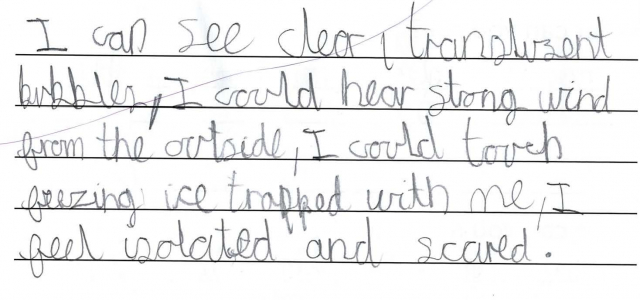 I can see clear, transluzent
bubbles, I could hear strong wind
from the outside, I could touch
freezing ice trapped with me, I
feel isolated and scared.